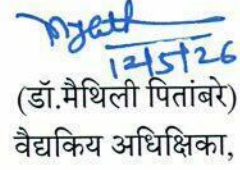 12/5/26
(डॉ.मैथिली पितांबरे)
वैद्यकिय अधिक्षिका,